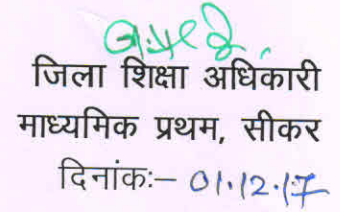 जिला शिक्षा अधिकारी
माध्यमिक प्रथम, सीकर
दिनांकः– 01.12.17